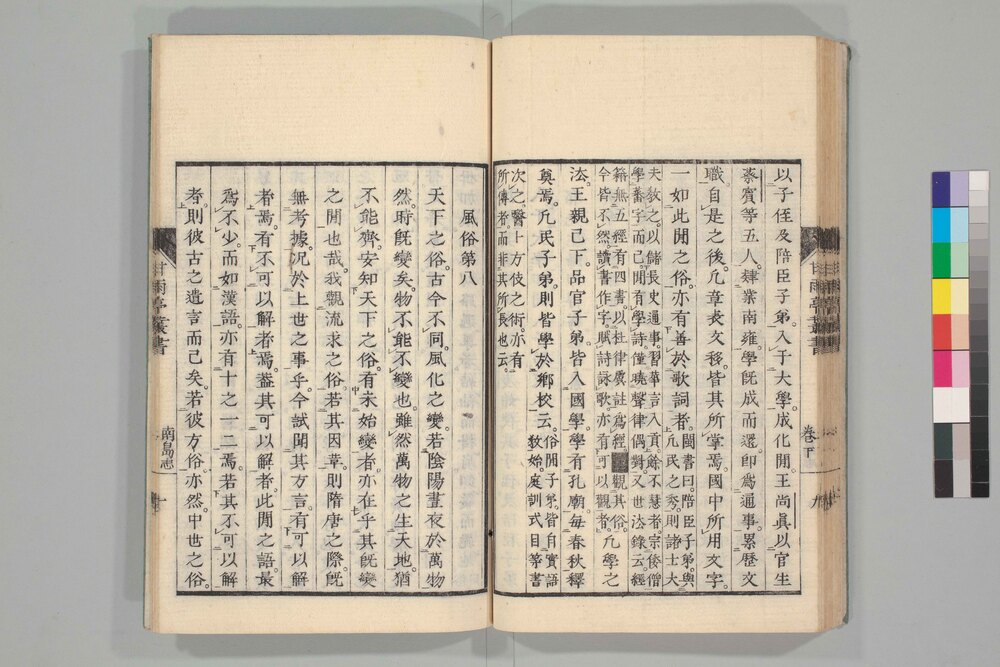 以子侄及陪臣子弟。入于大學。成化閒。王尚眞以官生
蔡賓等五人。肄業南雍。學旣成而還。卽爲通事。累歷文
職。自是之後。凡章表文移。皆其所掌焉。國中所用文字。
一如此閒之俗。亦有善於歌詞者。閩書曰。陪臣子弟。與凡民之秀。則諸士大
夫敎之。以儲長史通事。習華言入貢。餘不慧者。宗倭僧
學番字而已。閒有學詩。僅曉聲律偶對。又世法錄云。經
籍無五經。有四書。以杜律虞註爲經。觀其俗。凡學之
今皆不然。讀書作字。賦詩詠歌。亦有可以觀者。
法。王親已下。品官子弟。皆入國學。學有孔廟。每春秋釋
奠焉。凡民子弟。則皆學於鄕校云。俗閒子弟。皆自實語敎始。庭訓式目等書
次之。醫卜方伎之術。亦有
所傳者。而非其所長也云。
風俗第八
天下之俗。古今不同。風化之變。若陰陽晝夜於萬物
然。時旣變矣。物不能不變也。雖然萬物之生天地猶
不能齊。安知天下之俗。有未始變者。亦在乎其旣變
之閒也哉。我觀流求之俗。若其因革。則隋唐之際。旣
無考據。況於上世之事乎。今試聞其方言。有可以解
者焉。有不可以解者焉。蓋其可以解者。此閒之語。最
爲不少。而如漢語。亦有十之一二焉。若其不可以解
者。則彼古之遺言而已矣。若彼方俗亦然。中世之俗。
甘雨亭叢書
卷下
九
甘雨亭叢書
南島志
十